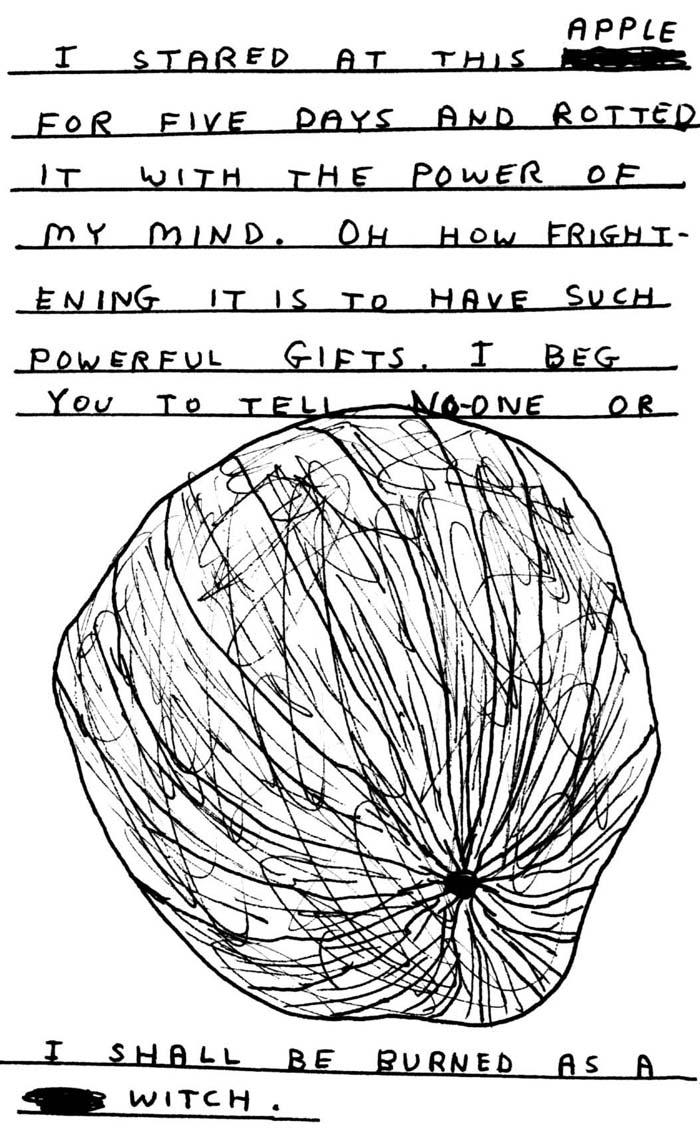 I STARED AT THIS APPLE
FOR FIVE DAYS AND ROTTED
IT WITH THE POWER OF
MY MIND. OH HOW FRIGHT-
ENING IT IS TO HAVE SUCH
POWERFUL GIFTS. I BEG
YOU TO TELL NO-ONE OR
I SHALL BE BURNED AS A
WITCH.